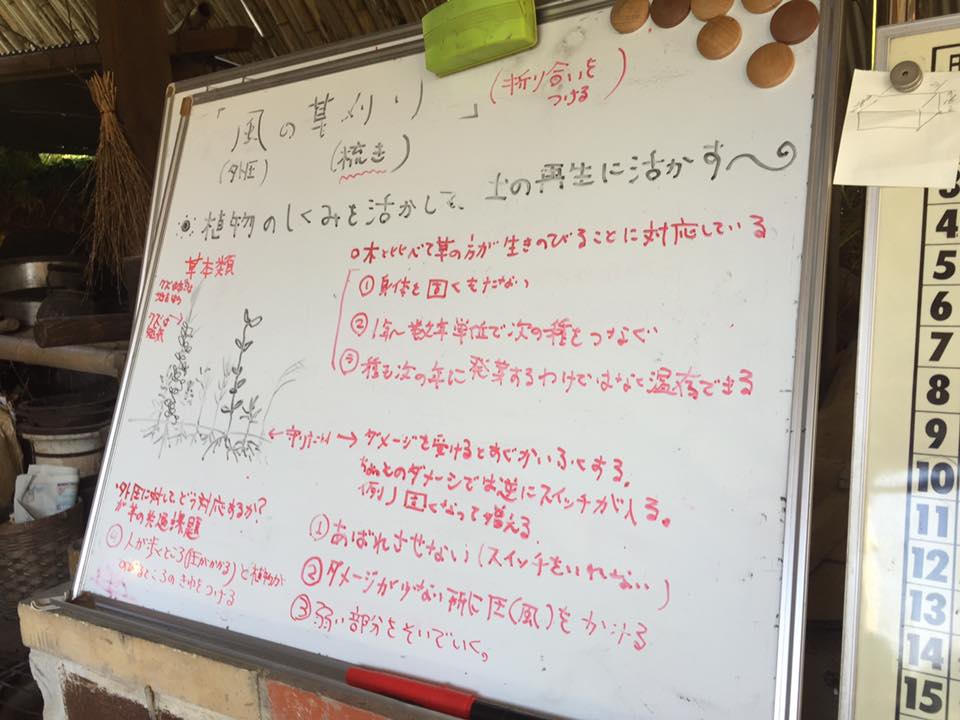 「風の草刈り」
(折り合いを
つける)
(外圧)
(梳き)
植物のしくみを活かして、土の再生に活かす〜
草本類
○木と比べて草の方が生きのびることに対応している
①身体を固くもたない
②1年〜数年単位で次の種をつなぐ
③種も次の年に発芽するわけではなく温存できる
← 守りたい → ダメージを受けるとすぐかいふくする。
ちょっとのダメージでは逆にスイッチが入る。
例)固くなって増える
外圧に対して、どう対応するか?
が草の共通課題
①あばれさせない(スイッチをいれない)
②ダメージが少ない所に圧(風)をかける
③弱い部分をそいでいく。
④人が歩くところ(圧がかかる)と植物が
のびるところのきわをつける
4
5
6
7
8
9
10
11
12
13
14
15